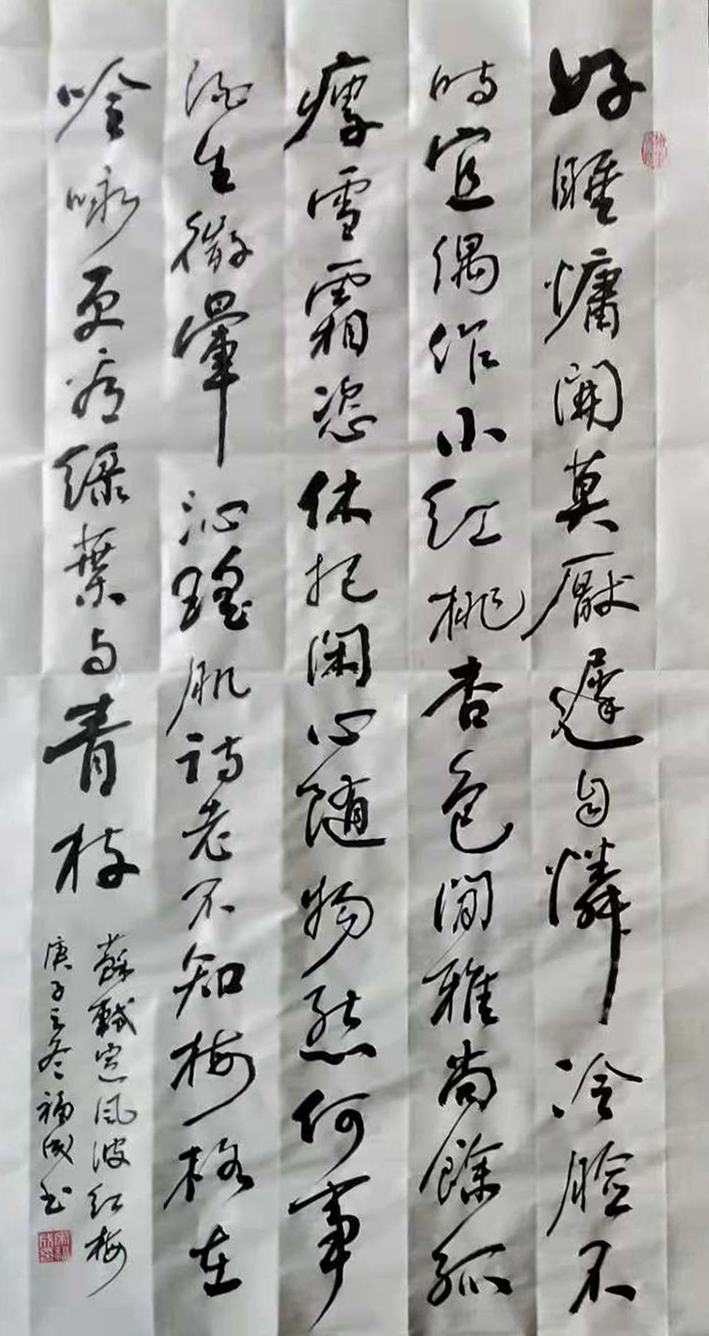 好睡慵開莫厭遲自憐冷臉不
時宜偶作小紅桃杏色閒雅尚餘孤
瘦雪霜恣休把閑心随物態何事
酒生微暈沁瑤肌詩老不知梅格在
唫咏更看綠葉与青枝
蘇軾定風波紅梅
庚子之冬福成书